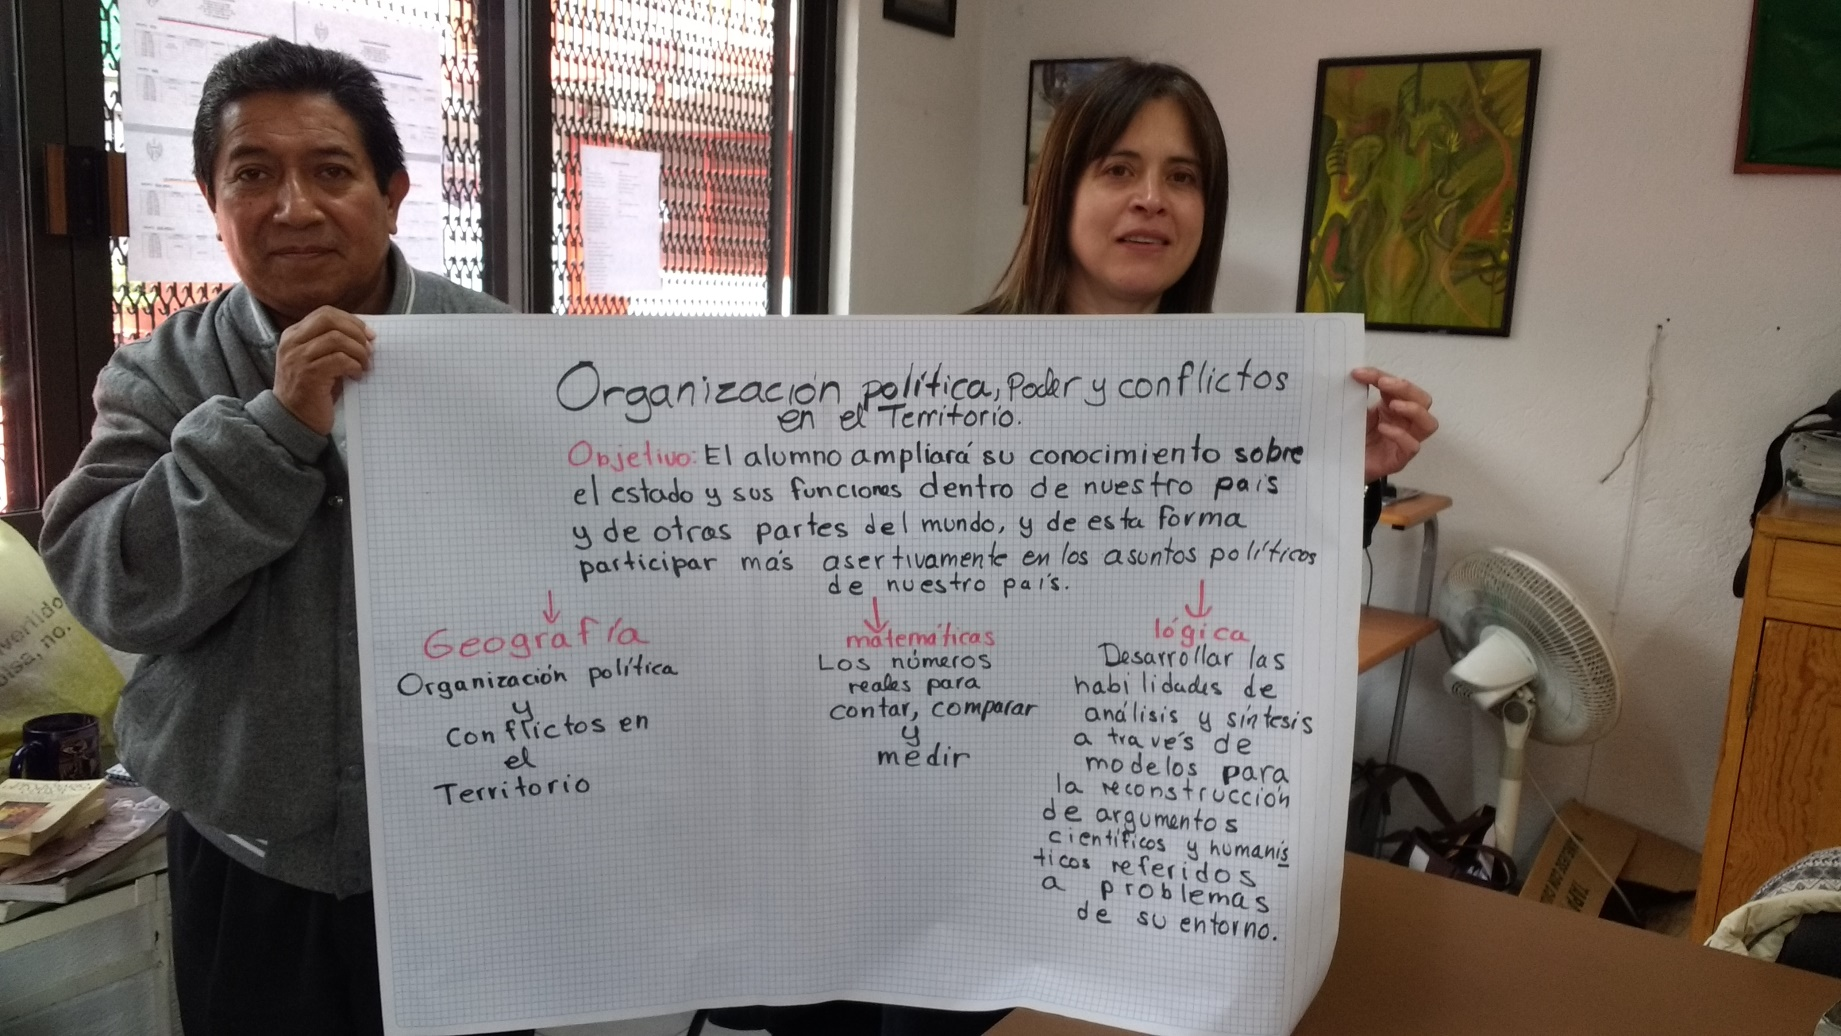 Organización política, Poder y conflictos
en el Territorio.
Objetivo: El alumno ampliará su conocimiento sobre
el estado y sus funciones dentro de nuestro país
y de otras partes del mundo, y de esta forma
participar más asertivamente en los asuntos políticos
de nuestro país.
Geografía
Organización política
y
Conflictos en
el
Territorio
matemáticas
Los números
reales para
contar, comparar
y
medir
lógica
Desarrollar las
habilidades de
análisis y síntesis
a través de
modelos para
la reconstrucción
de argumentos
científicos y humanís
ticos referidos
a problemas
de su entorno.
no.